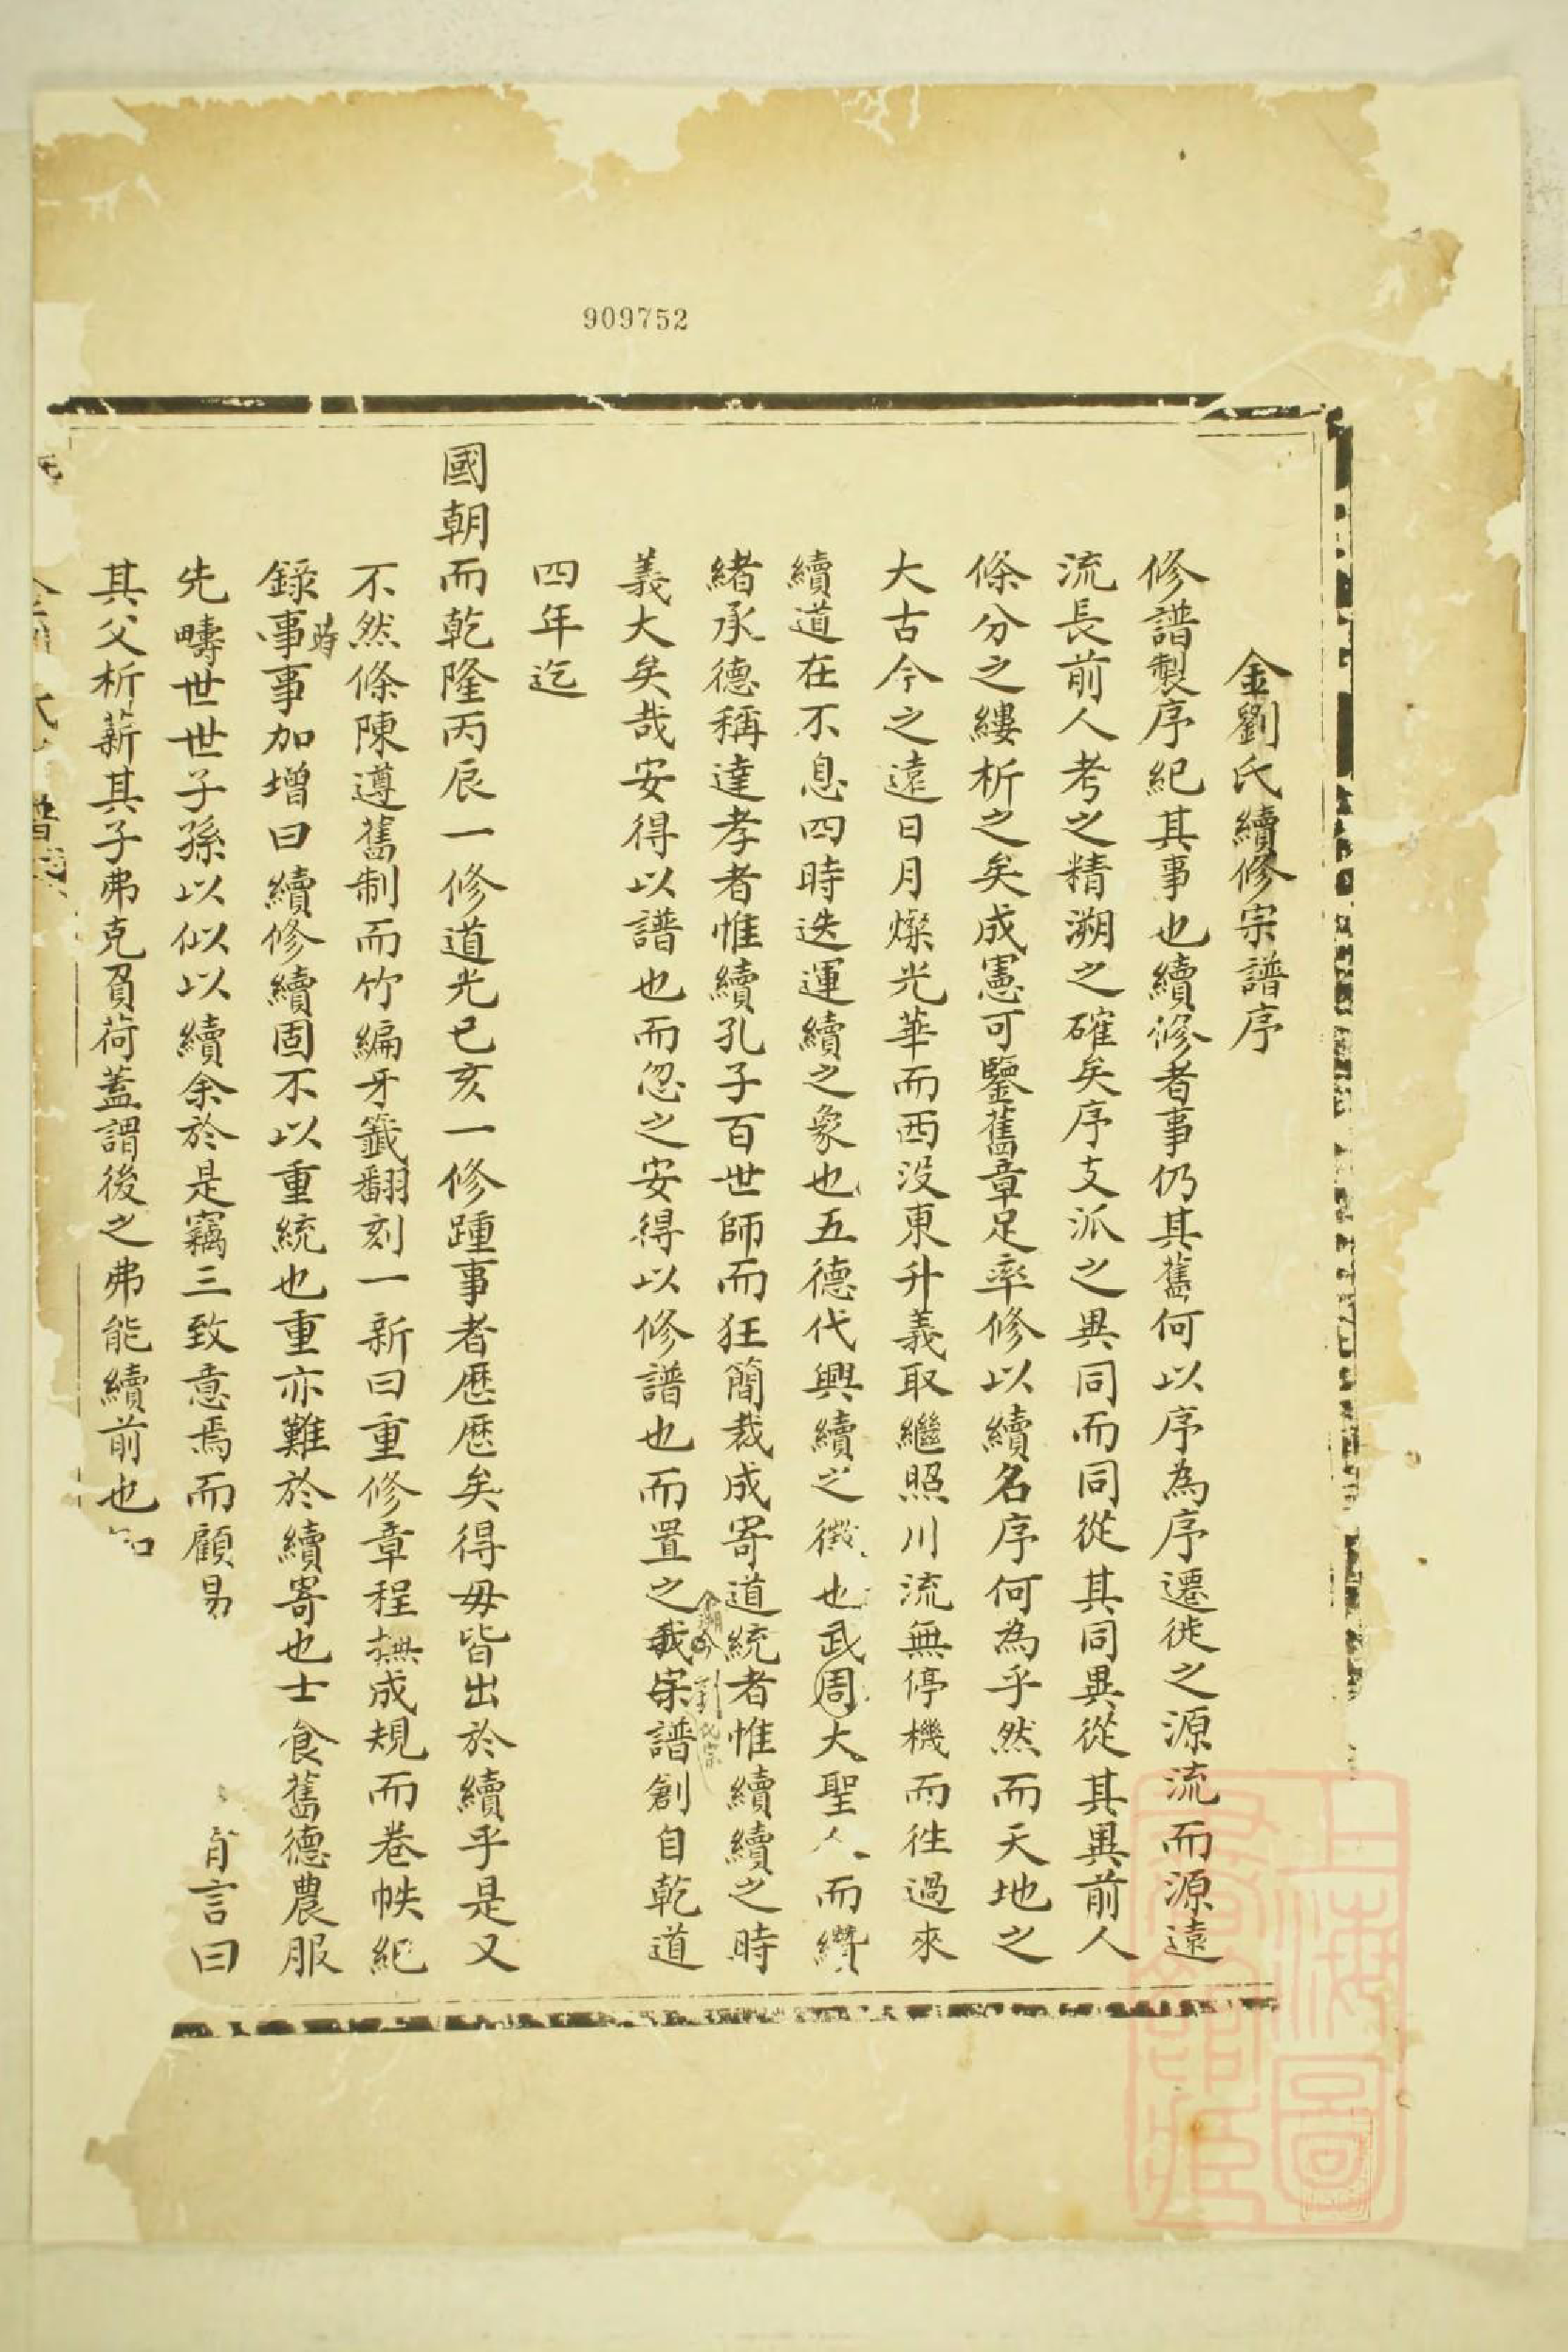 909752
金劉氏續修宗譜序
修譜製序紀其事也續修者事仍其舊何以序為序遷徙之源流而源遠
流長前人考之精溯之確矣序支派之異同而同從其同異從其異前人
條分之縷析之矣成憲可鑒舊章足率修以續名序何為乎然而天地之
大古今之遠日月燦光華而西没東升義取繼照川流無停機而徃過來
續道在不息四時迭運續之象也五德代興續之徵也武周大聖人而纘
緒承德稱達孝者惟續孔子百世師而狂簡裁成寄道統者惟續續之時
義大矣哉安得以譜也而忽之安得以修譜也而置之我宗譜創自乾道
四年迄
國朝而乾隆丙辰一修道光己亥一修踵事者歷歷矣得毋皆出於續乎是又
不然條陳遵舊制而竹編牙籤翻刻一新曰重修章程撫成規而卷帙紀
錄事時事加增曰續修續固不以重統也重亦難於續寄也士食舊德農服
先疇世世子孫以似以續余於是竊三致意焉而顧易 有言曰
其父析薪其子弗克負荷蓋謂後之弗能續前也
上海圖書館藏